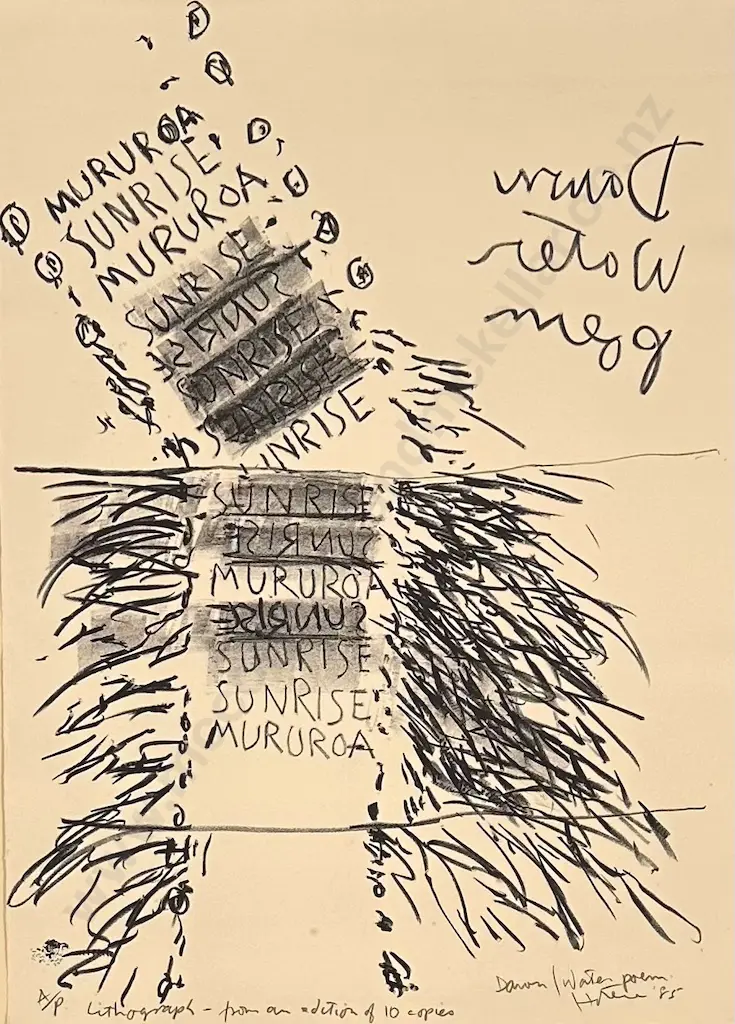 MURUROA
SUNRISE
MURUROA
SUNRISE
SUNRISE
SUNRISE
SUNRISE
UNRISE
Dawn
Water
Poem
SUNRISE
SUNRISE
MURUROA
SUNRISE
SUNRISE
SUNRISE
MURUROA
Dawn/Water poem
Hotere '85
A/P Lithograph - from an edition of 10 copies